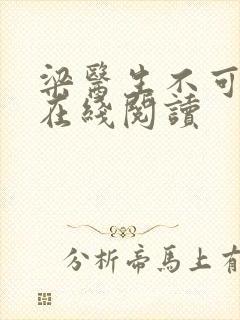 梁醫生不可
在綫閱讀
分析帝馬上有